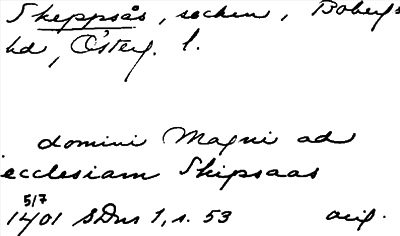 Skeppsås, socken, Bobergs
hd, Österg. l.
domini Magni ad
ecclesiam Skipsaas
5/7
1401 SDns 1, s. 53 orig.